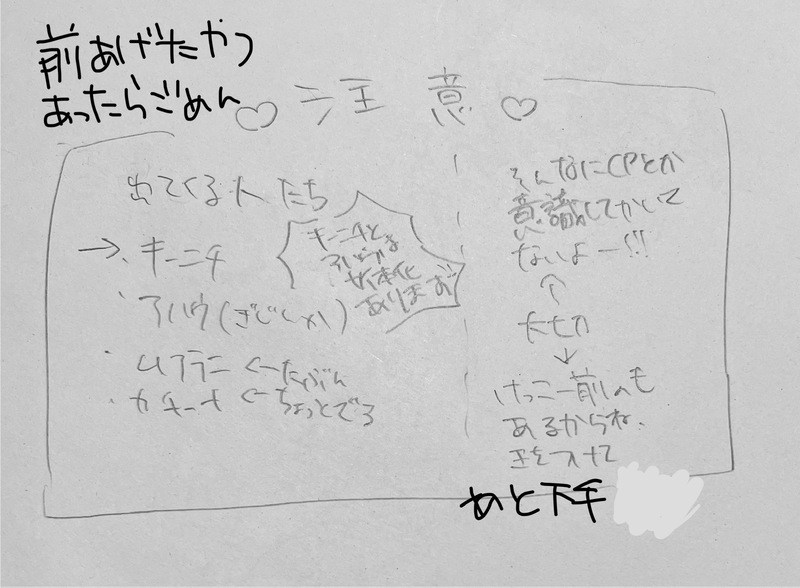 前あげたやつ
あったらごめん
♡注意♡
出てくる人たち
→・キーニチ
・アハウ(ぎじんか)
・ムアラニ←たぶん
・カチーナ←ちょっとでる
キーニチと
アハウは
女体化
あります
そんなにCPとか
意識してかいて
ないよー!!
↑
大切
↓
けっこー前のも
あるからね、
きをつけて
あと下手